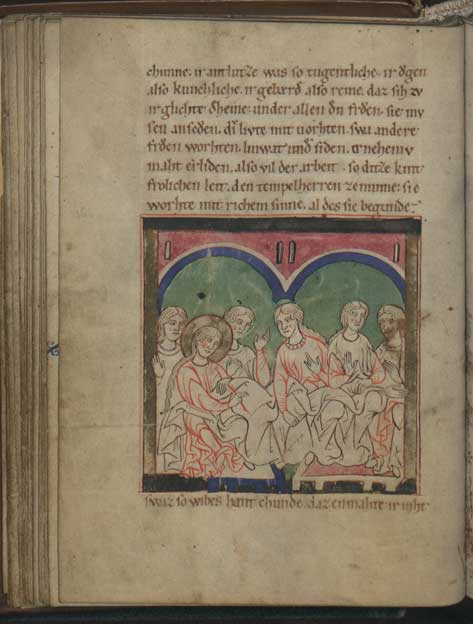 chunne. ir antlutze was so tugentliche. ir ögen
also kuschliche. ir gebærd also reine. daz sih zv
ir glichte dheine. under allen dn fröen. sie mv
sen di livte mit vorhten. swa andere
fröen worhten. linwat und siden.
maht erliden. also vil der arbeit. so ditze kint
frolichen leit. den tempelherren ze minne. sie
worhte mit richem sinne. al des sie begunde.
swaz so wibes hant chunde. daz en mahte ir niht